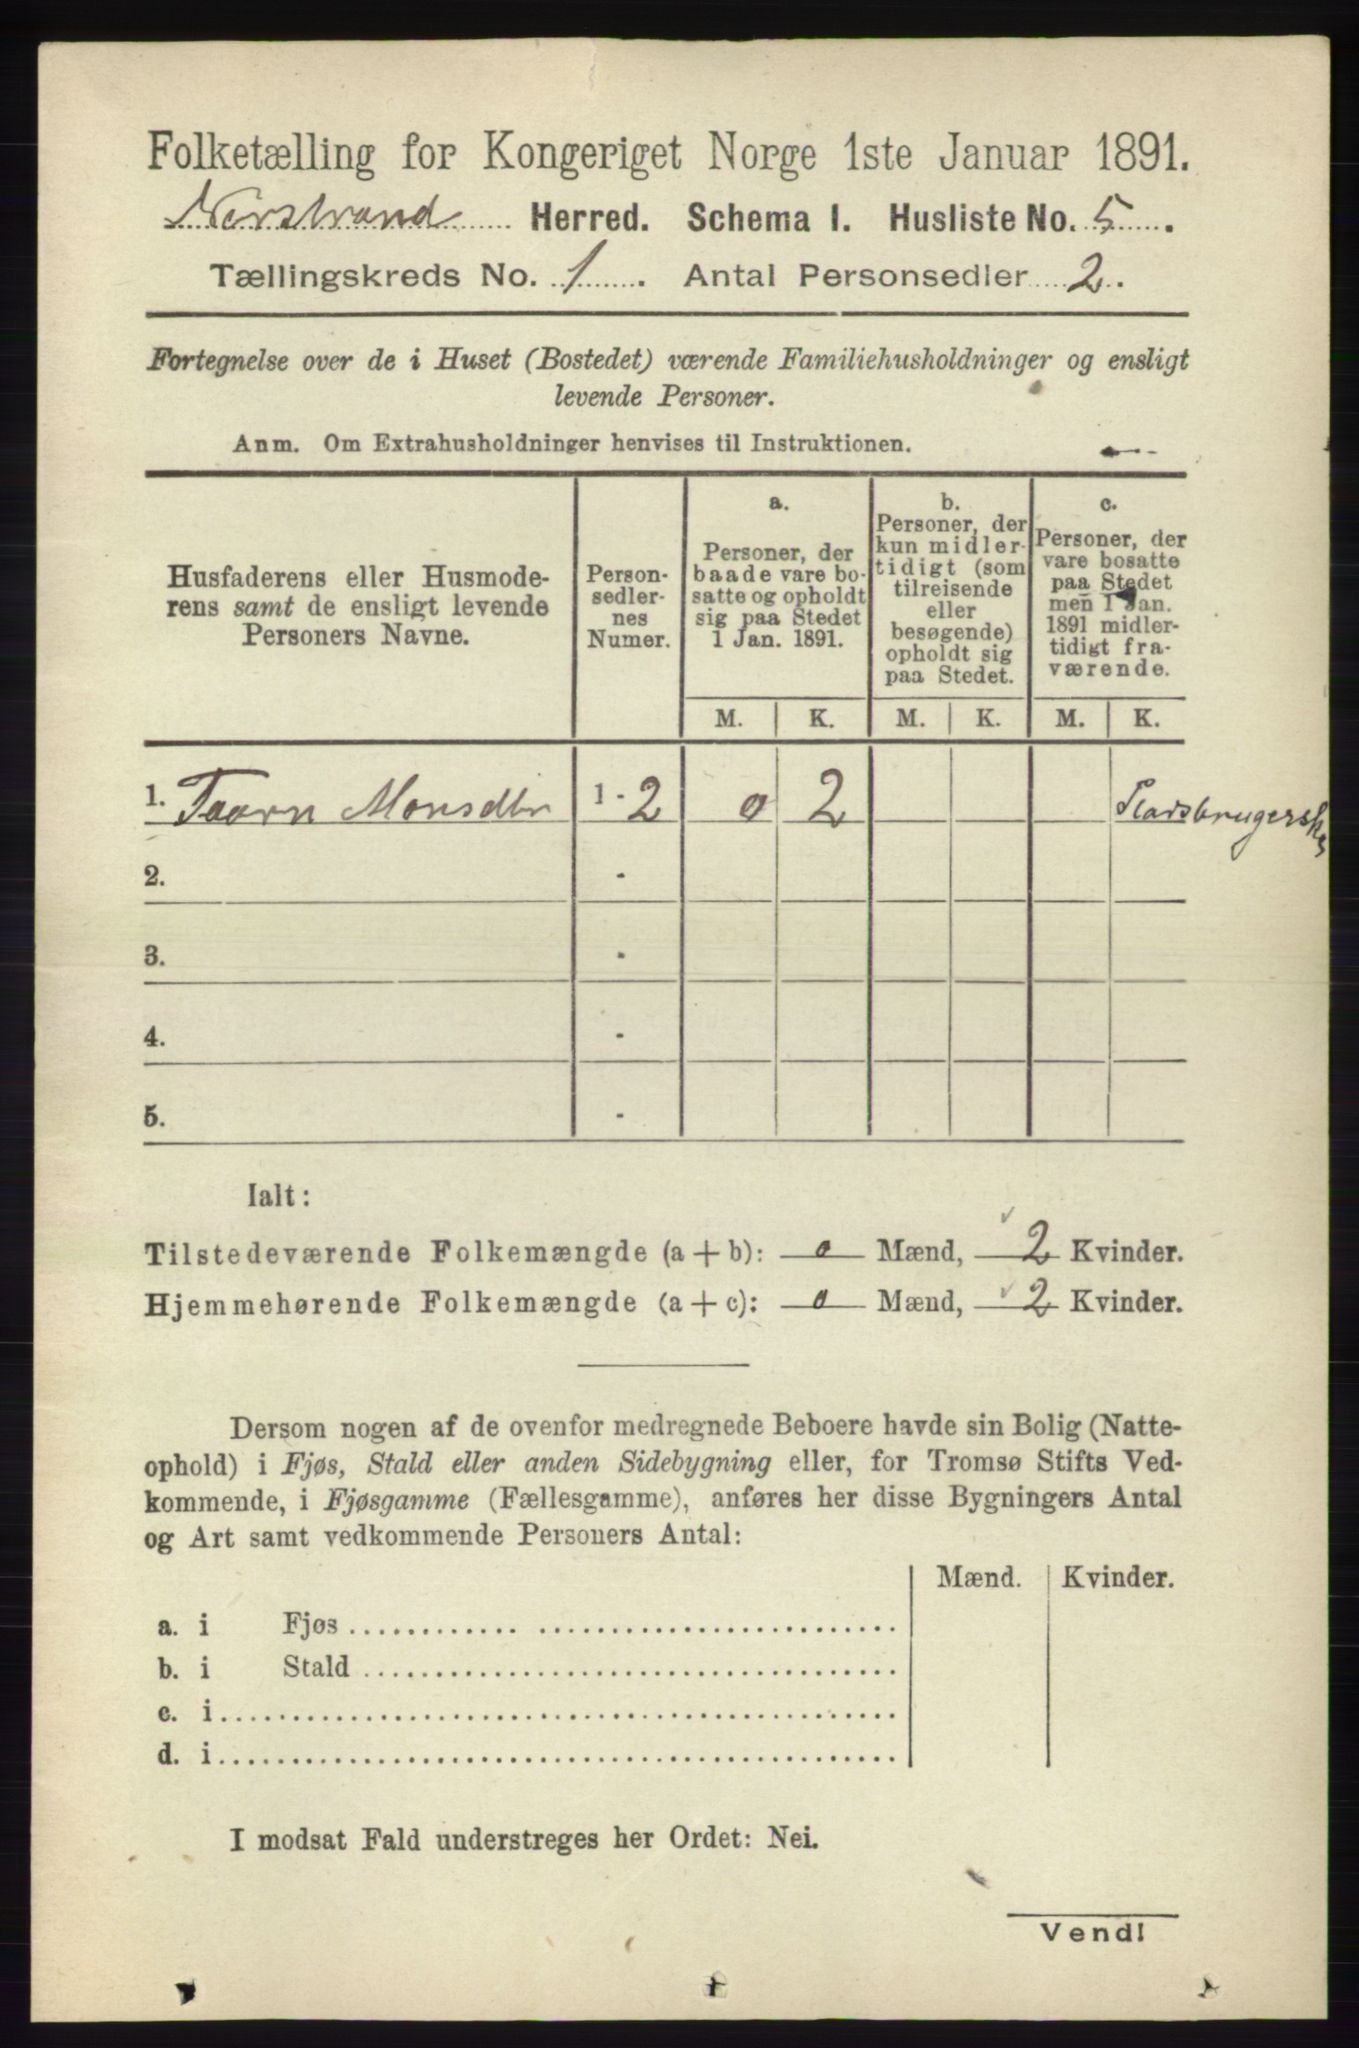 Folketælling for Kongeriget Norge 1ste Januar 1891.
Nerstrand Herred. Schema I. Husliste No. 5.
Tællingskreds No. 1. Antal Personsedler 2.
Fortegnelse over de i Huset (Bostedet) værende Familiehusholdninger og ensligt
levende Personer.
Anm. Om Extrahusholdninger henvises til Instruktionen.
Husfaderens eller Husmode-
rens samt de ensligt levende
Personers Navne.
Person-
sedler-
nes
Numer.
a.
Personer, der
baade vare bo-
satte og opholdt
sig paa Stedet
1 Jan. 1891.
b.
Personer, der
kun midler-
tidigt (som
tilreisende
eller
besøgende)
opholdt sig
paa Stedet.
c.
Personer, der
vare bosatte
paa Stedet
men 1 Jan.
1891 midler-
tidigt fra-
værende.
M. K. M. K. M. K.
1. Taarn Monsdtr 1 - 2 0 2 Pladsbrugerske
2. -
3. -
4. -
5. -
Ialt:
Tilstedeværende Folkemængde (a + b): 0 Mænd, 2 Kvinder.
Hjemmehørende Folkemængde (a + c): 0 Mænd, 2 Kvinder.
Dersom nogen af de ovenfor medregnede Beboere havde sin Bolig (Natte-
ophold) i Fjøs, Stald eller anden Sidebygning eller, for Tromsø Stifts Ved-
kommende, i Fjøsgamme (Fællesgamme), anføres her disse Bygningers Antal
og Art samt vedkommende Personers Antal:
Mænd. Kvinder.
a. i Fjøs
b. i Stald
c. i
d. i
I modsat Fald understreges her Ordet: Nei.
Vend!